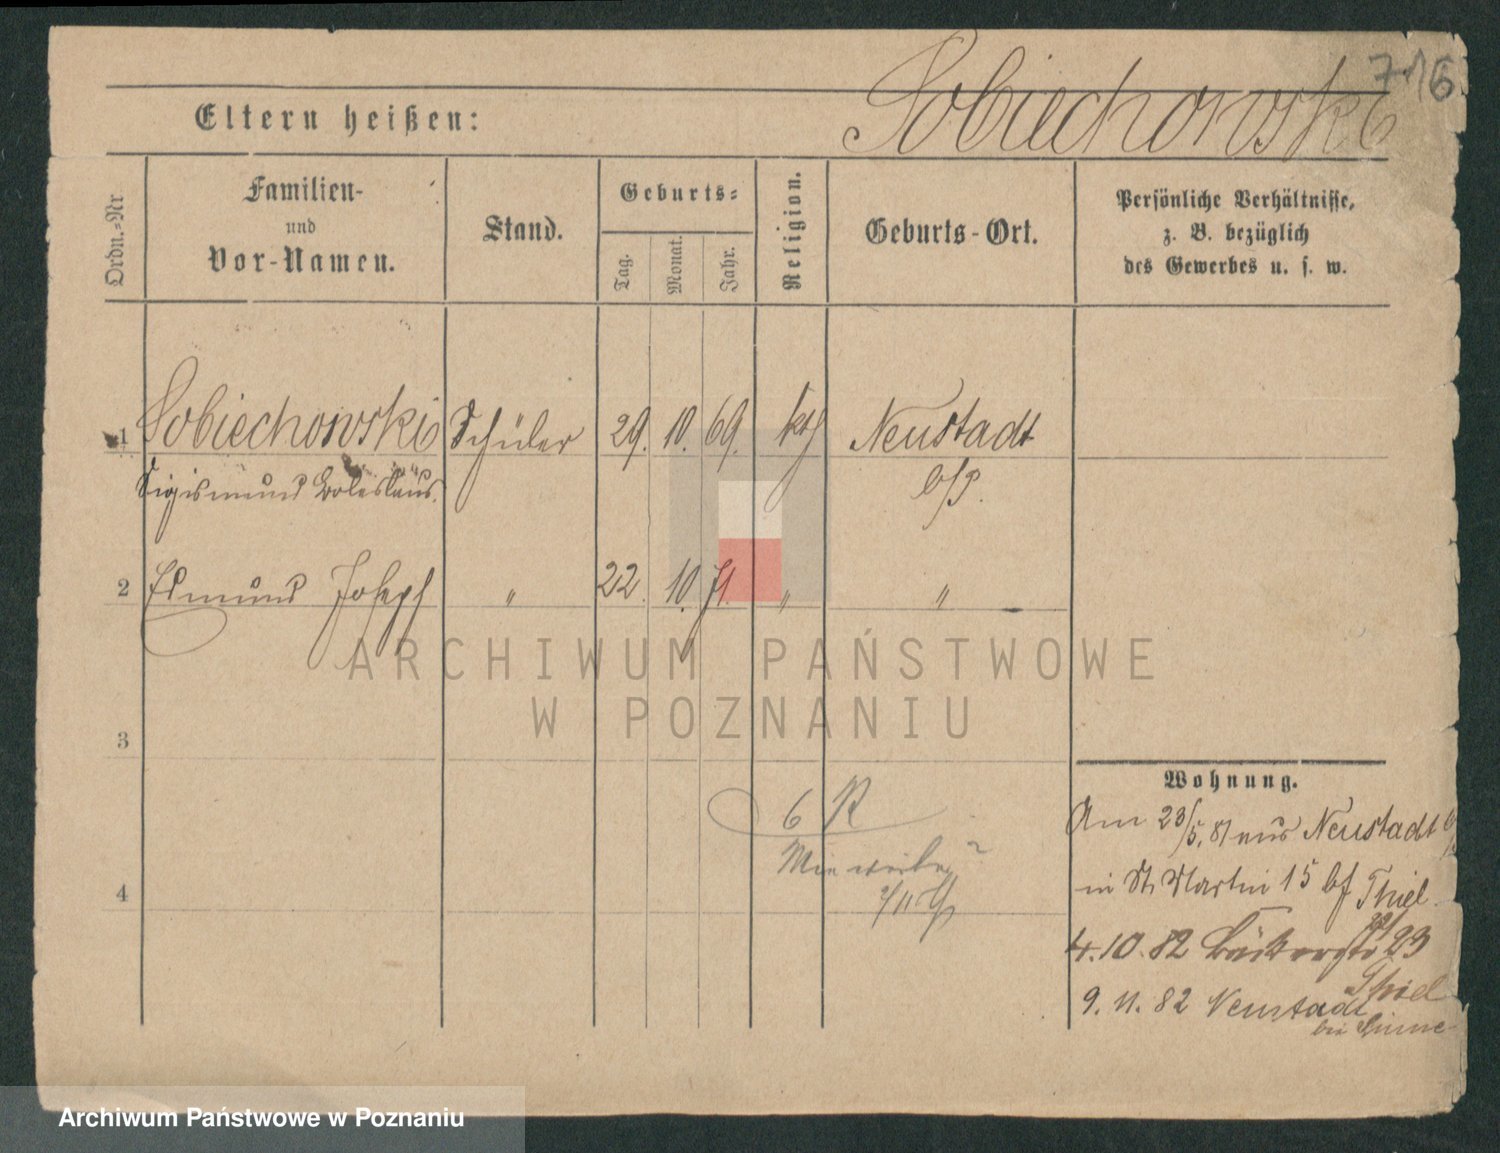 716
Sobiechowski
Eltern heißen:
Ordn.-Nr
Familien-
und
Vor-Namen.
Stand.
Geburts-
Tag.
Monat.
Jahr.
Religion.
Geburts-Ort.
Persönliche Verhältnisse,
z. B. bezüglich
des Gewerbes u. s. w.
1 Sobiechowski Schüler 29. 10. 69. kth Neustadt
Sigismund Boleslaus. b/P.
2 Edmund Joseph " 22. 10. 71. " "
3
4
6 R
Wohnung.
Am 23/5. 81 aus Neustadt b/
in St. Martin 15 bf Thiel
4. 10. 82 Bäckerstr 23
Thiel
9. 11. 82 Neustadt
bei Pinne
ARCHIWUM PAŃSTWOWE
W POZNANIU
Archiwum Państwowe w Poznaniu